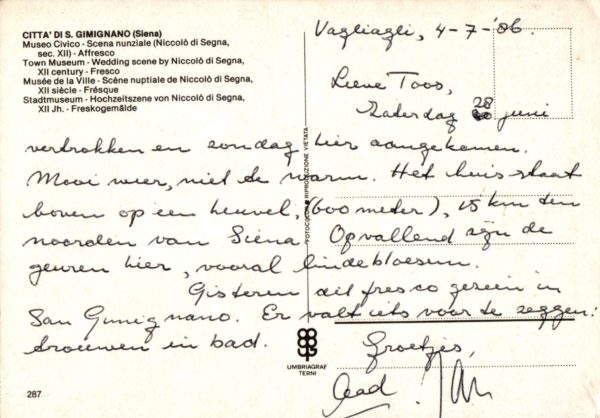 CITTA' DI S. GIMIGNANO (Siena)
Museo Civico - Scena nunziale (Niccolò di Segna,
sec. XII) - Affresco
Town Museum - Wedding scene by Niccolò di Segna,
XII century - Fresco
Musée de la Ville - Scène nuptiale de Niccolò di Segna,
XII siècle - Frésque
Stadtmuseum - Hochzeitszene von Niccolò di Segna,
XII Jh. - Freskogemälde
Vagliagli, 4-7-'86.
Lieve Toos,
Zaterdag 28 juni
vertrokken en zondag hier aangekomen.
Mooi weer, niet te warm. Het huis staat
boven op een heuvel, (600 meter), 15 km ten
noorden van Siena. Opvallend zijn de
geuren hier, vooral lindebloesem.
Gisteren dit fresco gezien in
San Gimignano. Er valt iets voor te zeggen:
trouwen in bad.
Groetjes,
Aad
FOTOCOLOR RIPRODUZIONE VIETATA
UMBRIAGRAF
TERNI
287